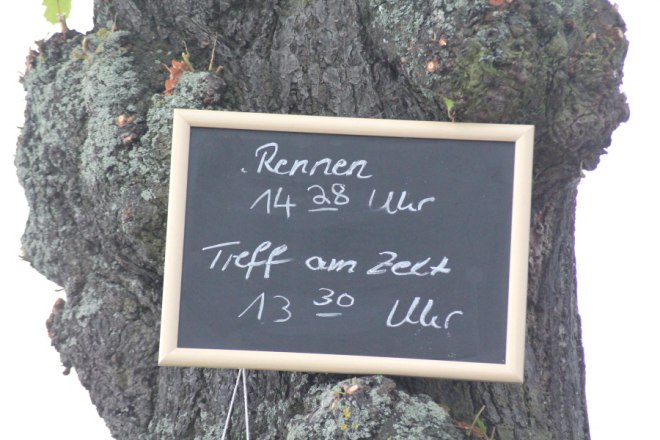 Rennen
14 28 Uhr
Treff am Zelt
13 30 Uhr